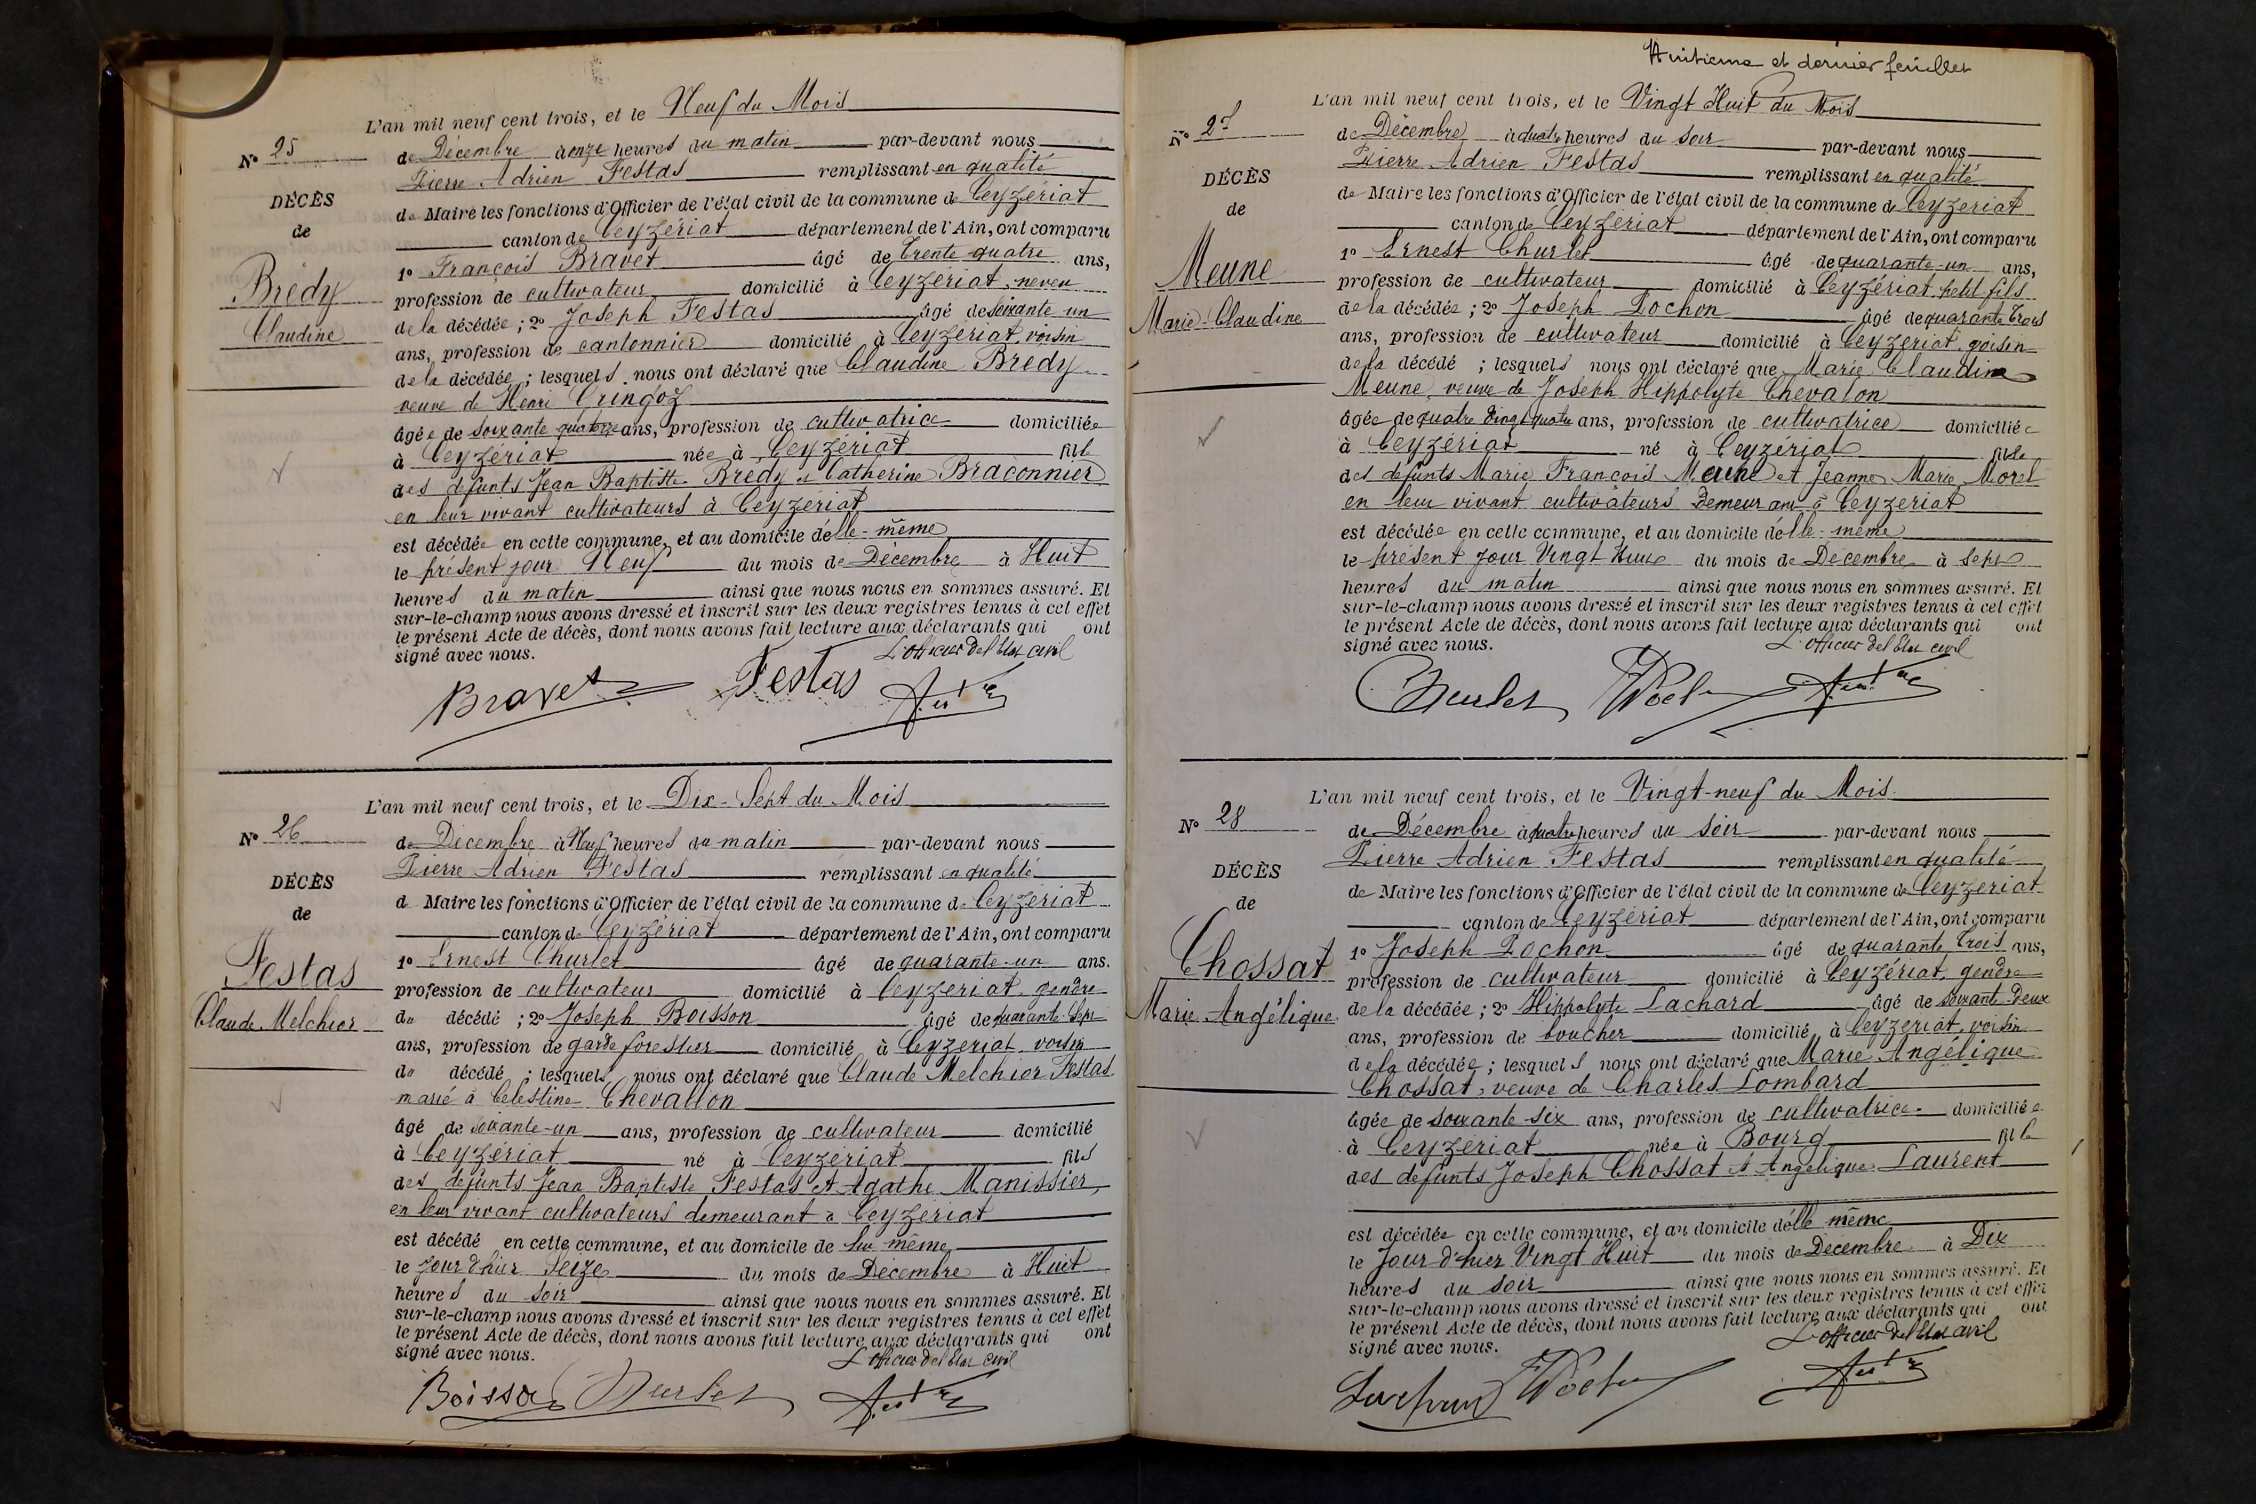 L'an mil neuf cent trois, et le Neuf du Mois
N° 25
de Décembre à onze heures du matin par-devant nous
Pierre Adrien Festas remplissant en qualité
DÉCÈS
de Maire les fonctions d'Officier de l'état civil de la commune de Ceyzériat
de
canton de Ceyzériat département de l'Ain, ont comparu
1° François Bravet âgé de trente quatre ans,
Brédy
profession de cultivateur domicilié à Ceyzériat, neveu
de la décédée ; 2° Joseph Festas âgé de soixante un
Claudine
ans, profession de cantonnier domicilié à Ceyzériat, voisin
de la décédée ; lesquels nous ont déclaré que Claudine Brédy
veuve de Henri Curngoz
âgée de soixante quatorze ans, profession de cultivatrice domiciliée
à Ceyzériat née à Ceyzériat fille
des défunts Jean Baptiste Brédy et Catherine Braconnier
en leur vivant cultivateurs à Ceyzériat
est décédée en cette commune, et au domicile d'elle-même
le présent jour Neuf du mois de Décembre à Huit
heures du matin ainsi que nous nous en sommes assuré. Et
sur-le-champ nous avons dressé et inscrit sur les deux registres tenus à cet effet
le présent Acte de décès, dont nous avons fait lecture aux déclarants qui ont
signé avec nous.
L'officier de l'Etat civil
Bravet Festas
L'an mil neuf cent trois, et le Dix-Sept du Mois
N° 26
de Décembre à Neuf heures du matin par-devant nous
Pierre Adrien Festas remplissant en qualité
DÉCÈS
d Maire les fonctions d'Officier de l'état civil de la commune de Ceyzériat
de
canton de Ceyzériat département de l'Ain, ont comparu
1° Ernest Churlet âgé de quarante-un ans.
Festas
profession de cultivateur domicilié à Ceyzériat, gendre
Claude Melchior
du décédé ; 2° Joseph Boisson âgé de quarante-sept
ans, profession de garde forestier domicilié à Ceyzériat voisin
du décédé ; lesquels nous ont déclaré que Claude Melchior Festas
marié à Célestine Chevallon
âgé de soixante-un ans, profession de cultivateur domicilié
à Ceyzériat né à Ceyzériat fils
des défunts Jean Baptiste Festas et Agathe Manissier,
en leur vivant cultivateurs demeurant à Ceyzériat
est décédé en cette commune, et au domicile de lui-même
le jour d'hier Seize du mois de Décembre à Huit
heures du soir ainsi que nous nous en sommes assuré. Et
sur-le-champ nous avons dressé et inscrit sur les deux registres tenus à cet effet
le présent Acte de décès, dont nous avons fait lecture aux déclarants qui ont
signé avec nous.
L'officier de l'Etat civil
Boisson Churlet
Huitième et dernier feuillet
L'an mil neuf cent trois, et le Vingt Huit du Mois
N° 27
de Décembre à quatre heures du soir par-devant nous
Pierre Adrien Festas remplissant en qualité
DÉCÈS
de Maire les fonctions d'Officier de l'état civil de la commune de Ceyzériat
de
canton de Ceyzériat département de l'Ain, ont comparu
1° Ernest Churlet âgé de quarante-un ans,
Meune
profession de cultivateur domicilié à Ceyzériat petit fils
Marie-Claudine
de la décédée ; 2° Joseph Pochon âgé de quarante trois
ans, profession de cultivateur domicilié à Ceyzériat, voisin
de la décédé ; lesquels nous ont déclaré que Marie Claudine
Meune, veuve de Joseph Hippolyte Chevalon
âgée de quatre vingt quatre ans, profession de cultivatrice domiciliée
à Ceyzériat né à Ceyzériat fille
des défunts Marie François Meune et Jeanne Marie Morel
en leur vivant cultivateurs Demeurant à Ceyzériat
est décédée en cette commune, et au domicile d'elle-même
le présent jour Vingt Huit du mois de Décembre à sept
heures du matin ainsi que nous nous en sommes assuré. Et
sur-le-champ nous avons dressé et inscrit sur les deux registres tenus à cet effet
le présent Acte de décès, dont nous avons fait lecture aux déclarants qui ont
signé avec nous.
L'officier de l'Etat civil
Churlet
L'an mil neuf cent trois, et le Vingt-neuf du Mois
N° 28
de Décembre à quatre heures du soir par-devant nous
Pierre Adrien Festas remplissant en qualité
DÉCÈS
de Maire les fonctions d'Officier de l'état civil de la commune de Ceyzériat
de
canton de Ceyzériat département de l'Ain, ont comparu
1° Joseph Pochon âgé de quarante trois ans,
Chossat
profession de cultivateur domicilié à Ceyzériat, gendre
Marie Angélique
de la décédée ; 2° Hippolyte Lachard âgé de soixante Deux
ans, profession de boucher domicilié à Ceyzériat, voisin
de la décédée ; lesquels nous ont déclaré que Marie Angélique
Chossat, veuve de Charles Lombard
âgée de soixante-six ans, profession de cultivatrice domiciliée
à Ceyzériat née à Bourg fille
des défunts Joseph Chossat et Angélique Laurent
est décédée en cette commune, et au domicile d'elle même
le Jour d'hier Vingt Huit du mois de Décembre à Dix
heures du soir ainsi que nous nous en sommes assuré. Et
sur-le-champ nous avons dressé et inscrit sur les deux registres tenus à cet effet
le présent Acte de décès, dont nous avons fait lecture aux déclarants qui ont
signé avec nous.
L'officier de l'Etat civil